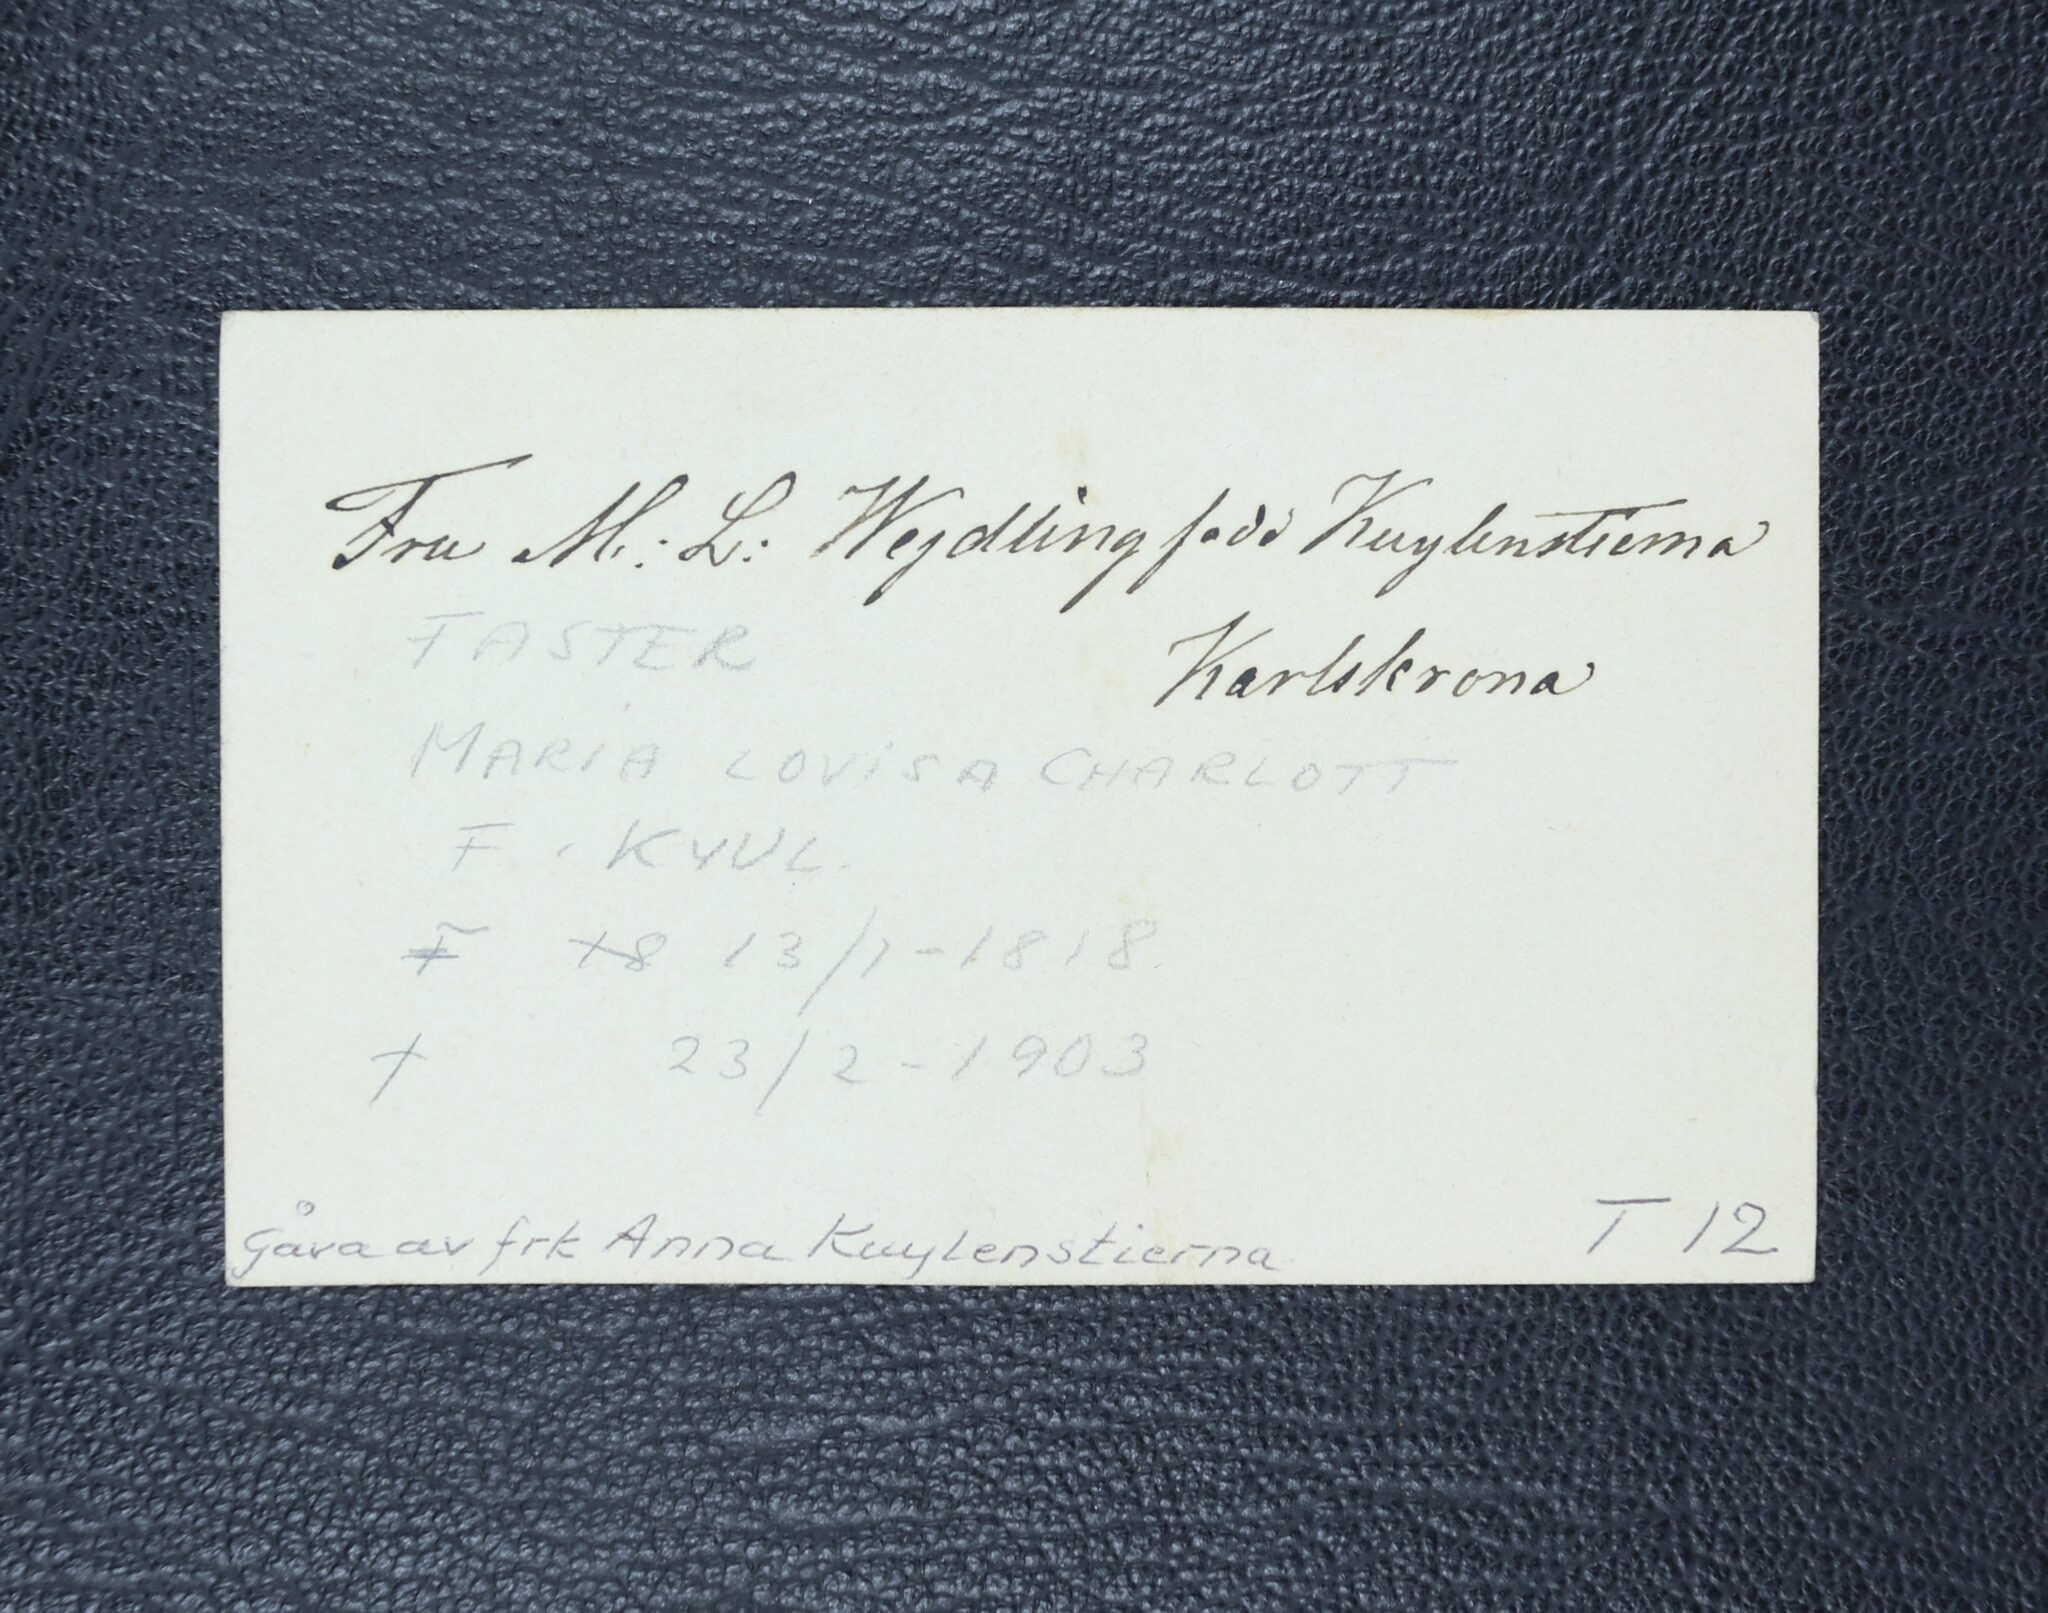 Fru M.: L: Wejdling född Kuylenstierna
Karlskrona
FASTER
MARIA LOVISA CHARLOTT
F. KYUL.
F 13/1-1818.
+ 23/2-1903
Gåva av frk Anna Kuylenstierna
T 12